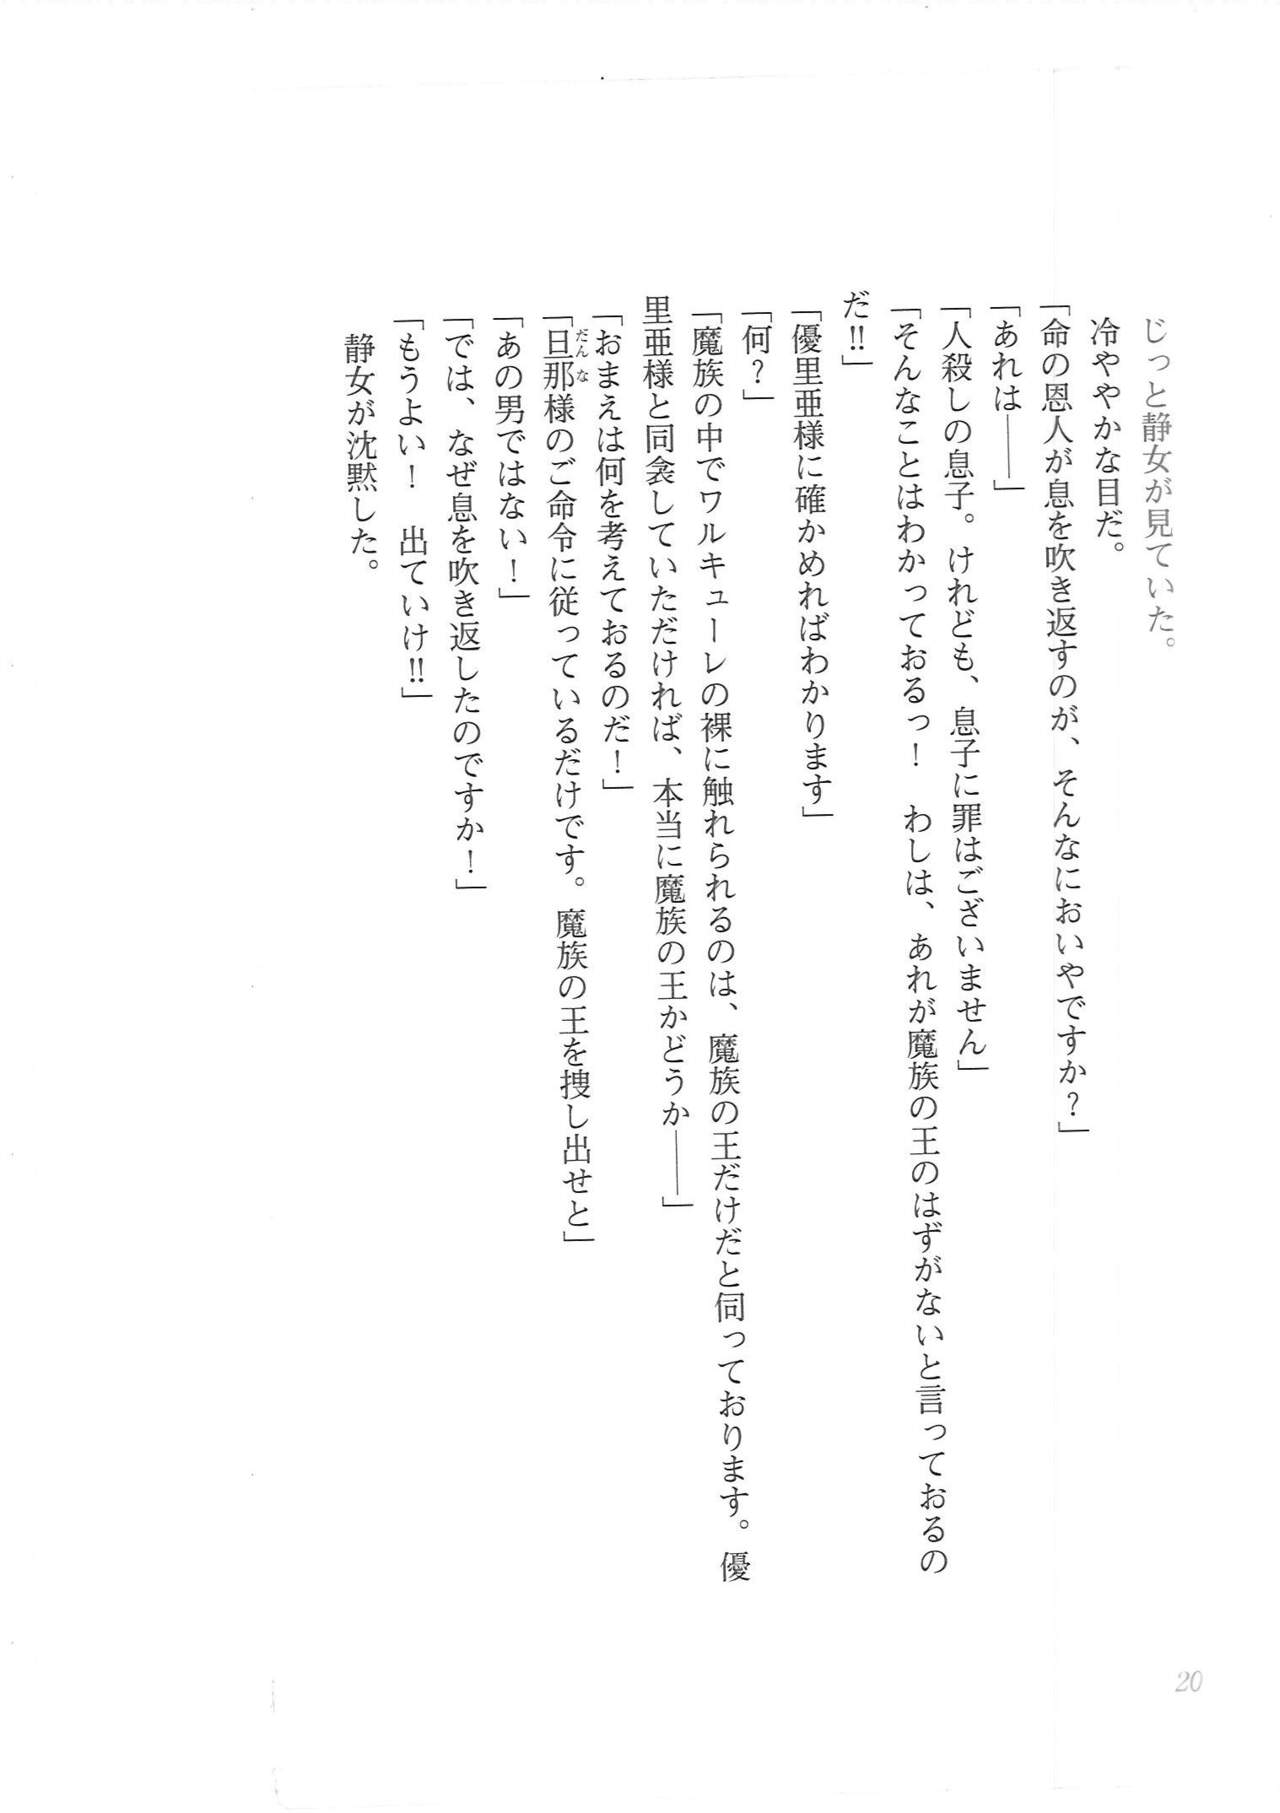 じっと静女が見ていた。
冷ややかな目だ。
「命の恩人が息を吹き返すのが、そんなにおいやですか？」
「あれは――」
「人殺しの息子。けれども、息子に罪はございません」
「そんなことはわかっておるっ！　わしは、あれが魔族の王のはずがないと言っておるの
だ!!」
「優里亜様に確かめればわかります」
「何？」
「魔族の中でワルキューレの裸に触れられるのは、魔族の王だけだと伺っております。優
里亜様と同衾していただければ、本当に魔族の王かどうか――」
「おまえは何を考えておるのだ！」
「旦那様のご命令に従っているだけです。魔族の王を捜し出せと」
だんな
「あの男ではない！」
「では、なぜ息を吹き返したのですか！」
「もうよい！　出ていけ!!」
静女が沈黙した。
20